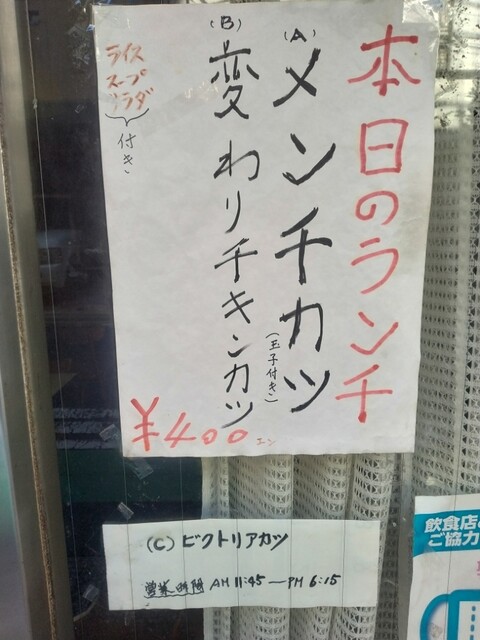 本日のランチ
(A)
メンチカツ
(玉子付き)
(B)
変わりチキンカツ
ライス
スープ
サラダ
付き
¥400エン
(C) ビクトリアカツ
営業時間 AM 11:45 — PM 6:15
飲食店
ご協力